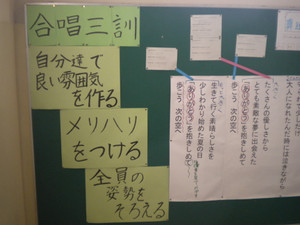 合唱三訓
自分達で
良い雰囲気
を作る
メリハリ
をつける
全員の
姿勢を
そろえる
大人になれたんだ時には泣きながら
たくさんの優しさから
とても素敵な夢に出会えた
「ありがとう」を抱きしめて
歩こう 次の空へ
生きて行く素晴らしさを
少しわかり始めた夏の日
「ありがとう」を抱きしめて
歩こう 次の空へ